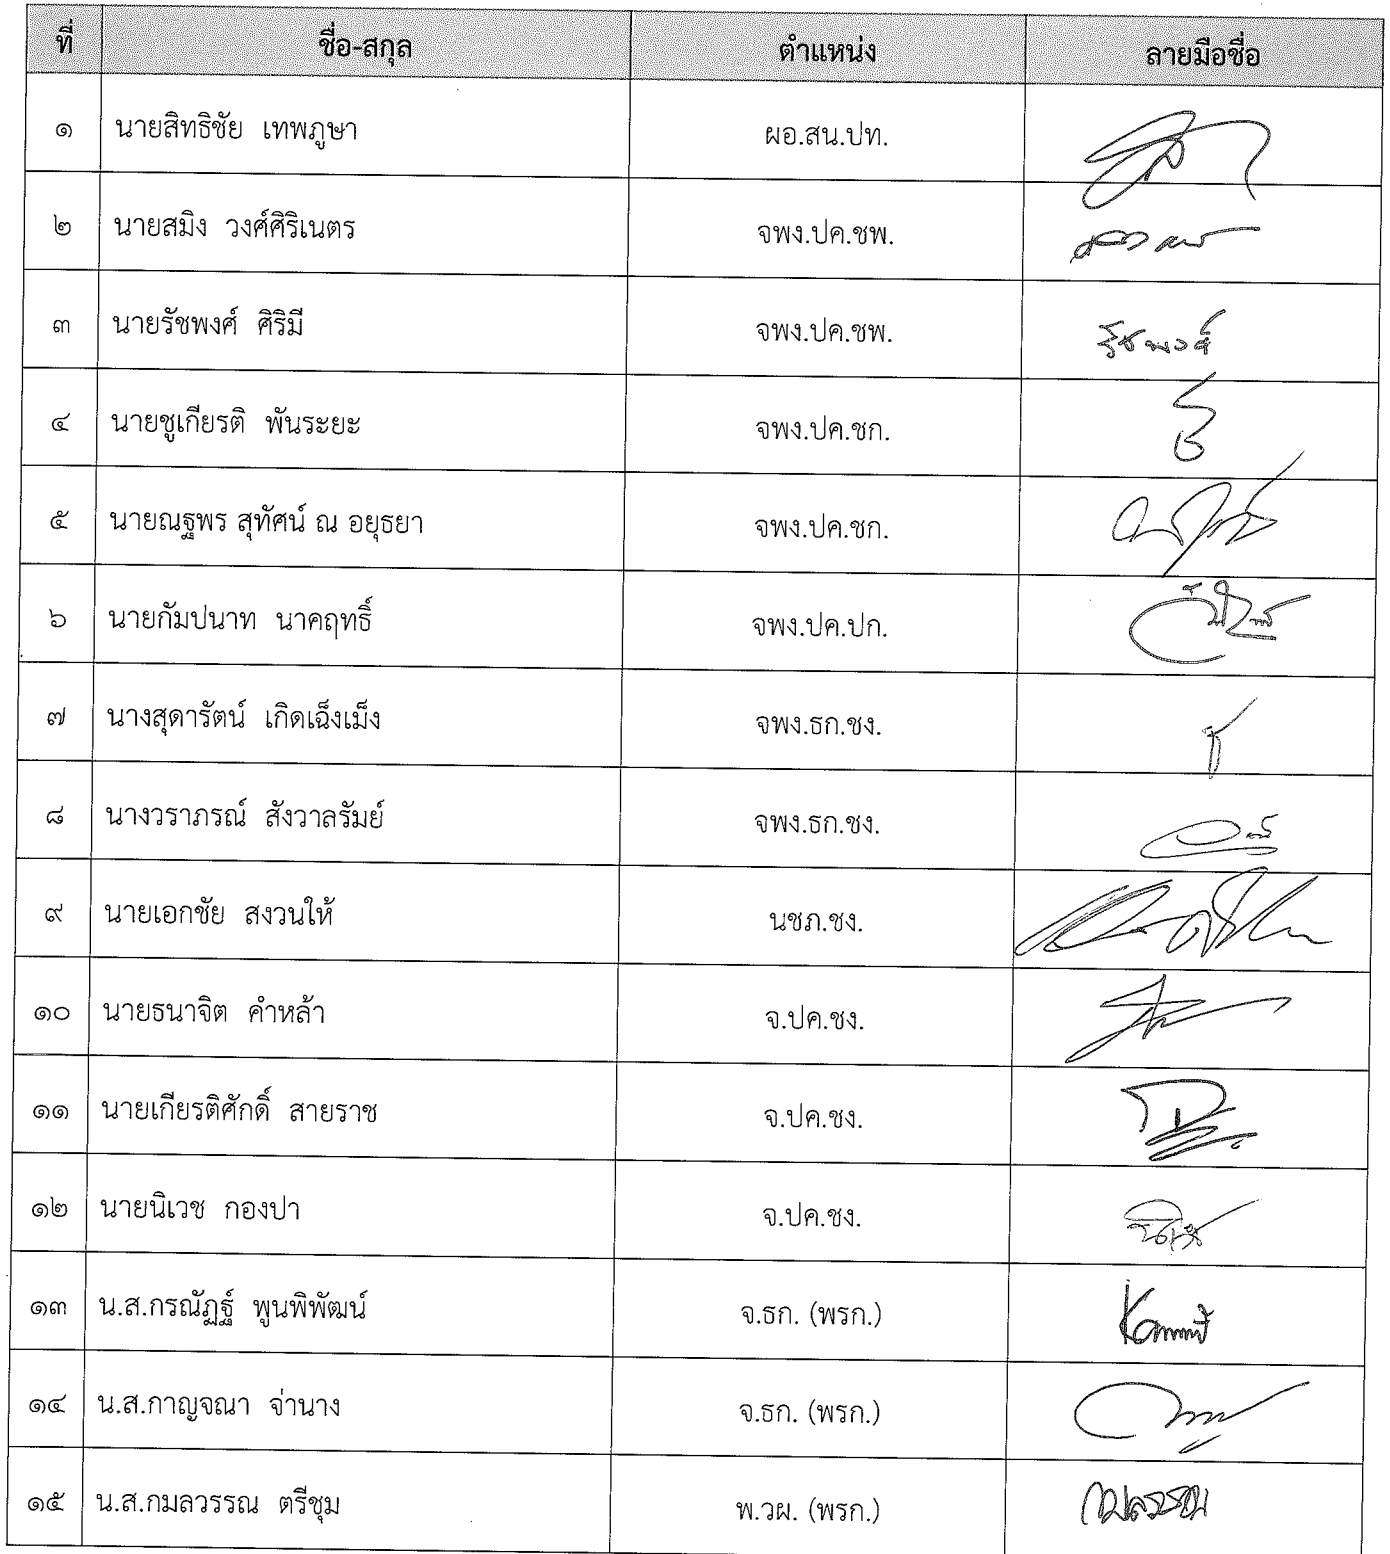 ที่ ชื่อ-สกุล ตำแหน่ง ลายมือชื่อ
๑ นายสิทธิชัย เทพภูษา ผอ.สน.ปท.
๒ นายสมิง วงศ์ศิริเนตร จพง.ปค.ชพ.
๓ นายรัชพงศ์ ศิริมี จพง.ปค.ชพ. รัชพงศ์
๔ นายชูเกียรติ พันระยะ จพง.ปค.ชก.
๕ นายณฐพร สุทัศน์ ณ อยุธยา จพง.ปค.ชก.
๖ นายกัมปนาท นาคฤทธิ์ จพง.ปค.ปก.
๗ นางสุดารัตน์ เกิดเฉ็งเม็ง จพง.ธก.ชง.
๘ นางวราภรณ์ สังวาลรัมย์ จพง.ธก.ชง.
๙ นายเอกชัย สงวนให้ นชภ.ชง.
๑๐ นายธนาจิต คำหล้า จ.ปค.ชง.
๑๑ นายเกียรติศักดิ์ สายราช จ.ปค.ชง.
๑๒ นายนิเวช กองปา จ.ปค.ชง.
๑๓ น.ส.กรณัฏฐ์ พูนพิพัฒน์ จ.ธก. (พรก.)
๑๔ น.ส.กาญจณา จ่านาง จ.ธก. (พรก.)
๑๕ น.ส.กมลวรรณ ตรีชุม พ.วผ. (พรก.) กมลวรรณ